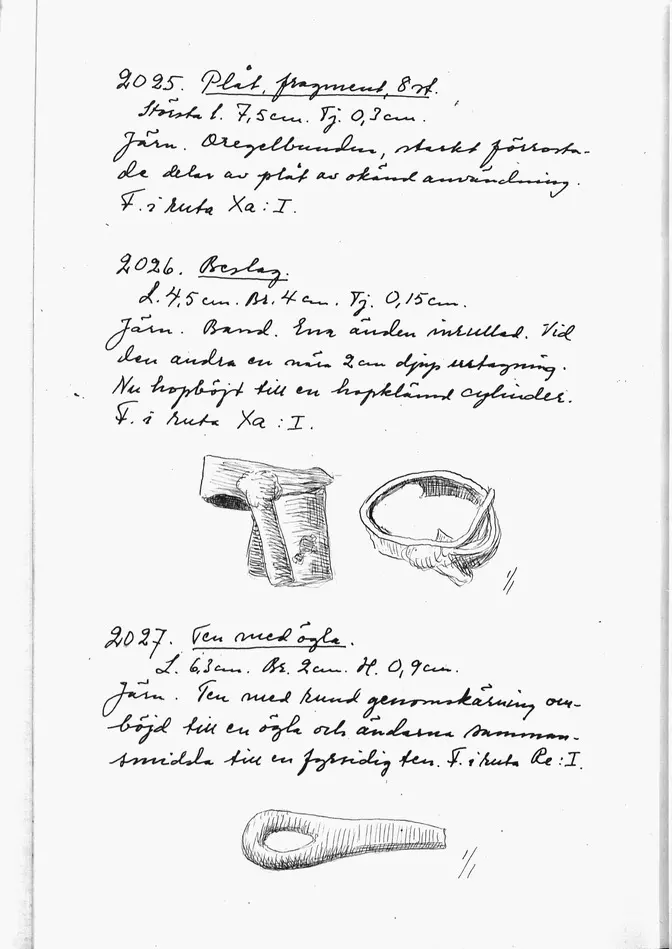 2025. Plåt, fragment, 8 st.
Största l. 7,5 cm. Tj. 0,3 cm.
Järn. Oregelbunden, starkt förrosta-
de delar av plåt av okänd användning.
F. i ruta Xa : I.
2026. Beslag.
L. 4,5 cm. Br. 4 cm. Tj. 0,15 cm.
Järn. Band. Ena änden inrullad. Vid
den andra en nära 2 cm djup urtagning.
Nu hopböjt till en hopklämd cylinder.
F. i ruta Xa : I.
1/1
2027. Ten med ögla.
L. 6,3 cm. Br. 2 cm. H. 0,9 cm.
Järn. Ten med rund genomskärning om-
böjd till en ögla och ändarna samman-
smidda till en fyrsidig ten. F. i ruta Re : I.
1/1